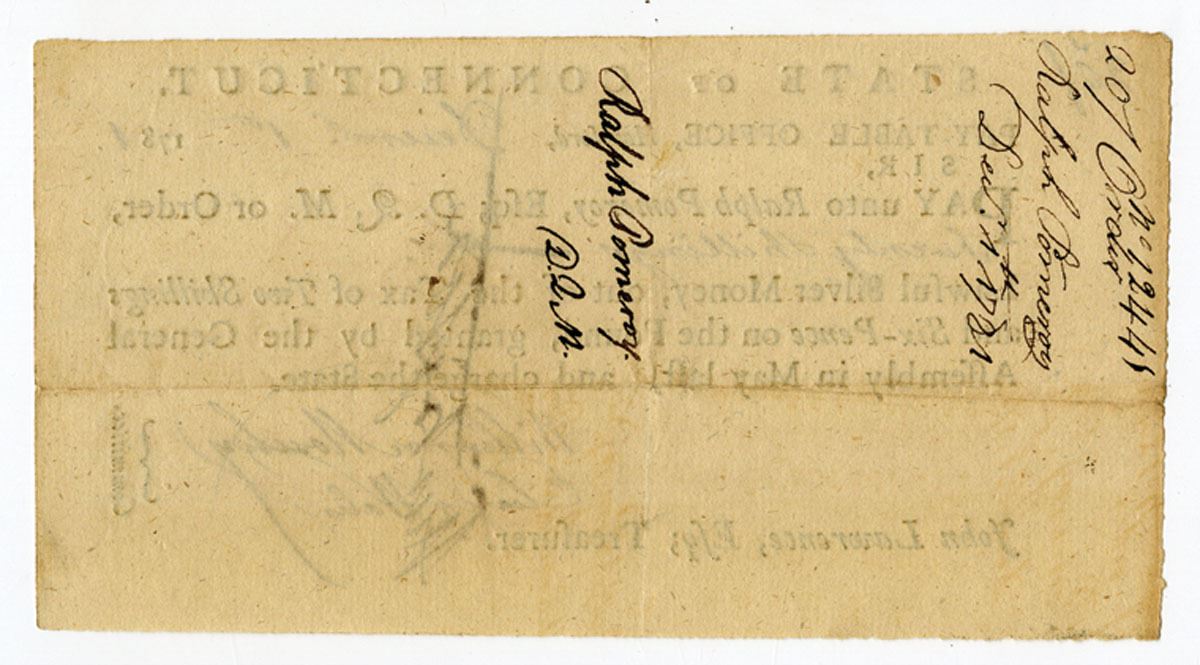 20/ Order No 12441
Ralph Pomeroy
Decr 1st 1781
Ralph Pomeroy.
D.Q.M.
STATE OF CONNECTICUT.
PAY-TABLE OFFICE, Hartford, 1781
SIR,
PAY unto Ralph Pomeroy, Eſq; D. Q. M. or Order,
Twenty Shillings
Lawful Silver Money, out of the Tax of Two Shillings
and Six-Pence on the Pound, granted by the General
Aſſembly in May laſt, and charge the State.
Committee.
John Lawrence, Eſq; Treaſurer.